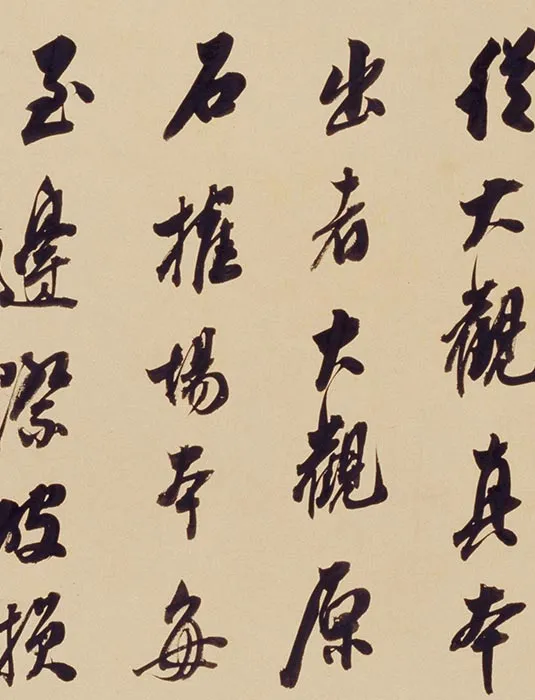 從大觀真本
出者大觀原
石搉場本每
至邊際皮損